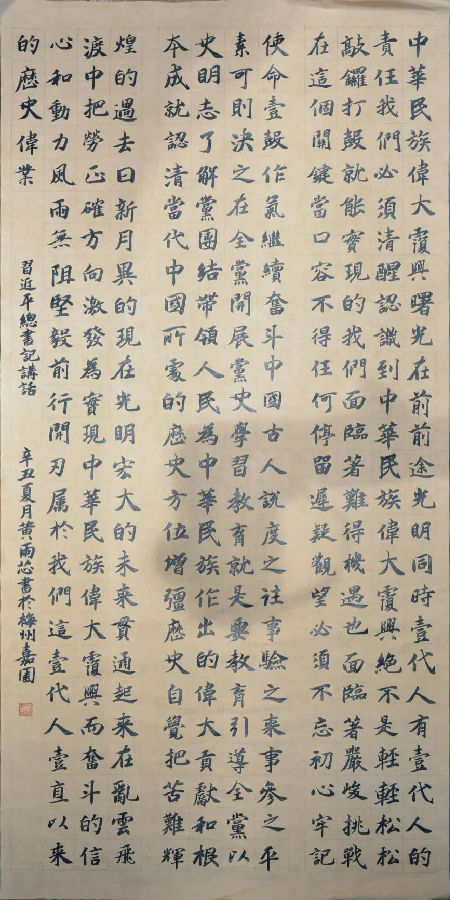 中華民族偉大覆興曙光在前前途光明同時壹代人有壹代人的
責任我們必須清醒認識到中華民族偉大覆興絕不是輕輕松松
敲鑼打鼓就能實現的我們面臨著難得機遇也面臨著嚴峻挑戰
在這個關鍵當口容不得任何停留遲疑觀望必須不忘初心牢記
使命壹鼓作氣繼續奮斗中國古人說度之往事驗之來事參之平
素可則決之在全黨開展黨史學習教育就是要教育引導全黨以
史明志了解黨團結帶領人民為中華民族作出的偉大貢獻和根
本成就認清當代中國所處的歷史方位增彊歷史自覺把苦難輝
煌的過去日新月異的現在光明宏大的未來貫通起來在亂雲飛
渡中把勞正確方向激發為實現中華民族偉大覆興而奮斗的信
心和動力風雨無阻堅毅前行開刃属於我們這壹代人壹直以來
的歷史偉業
習近平總書記講話
辛丑夏月黃雨芯書於梅州嘉園